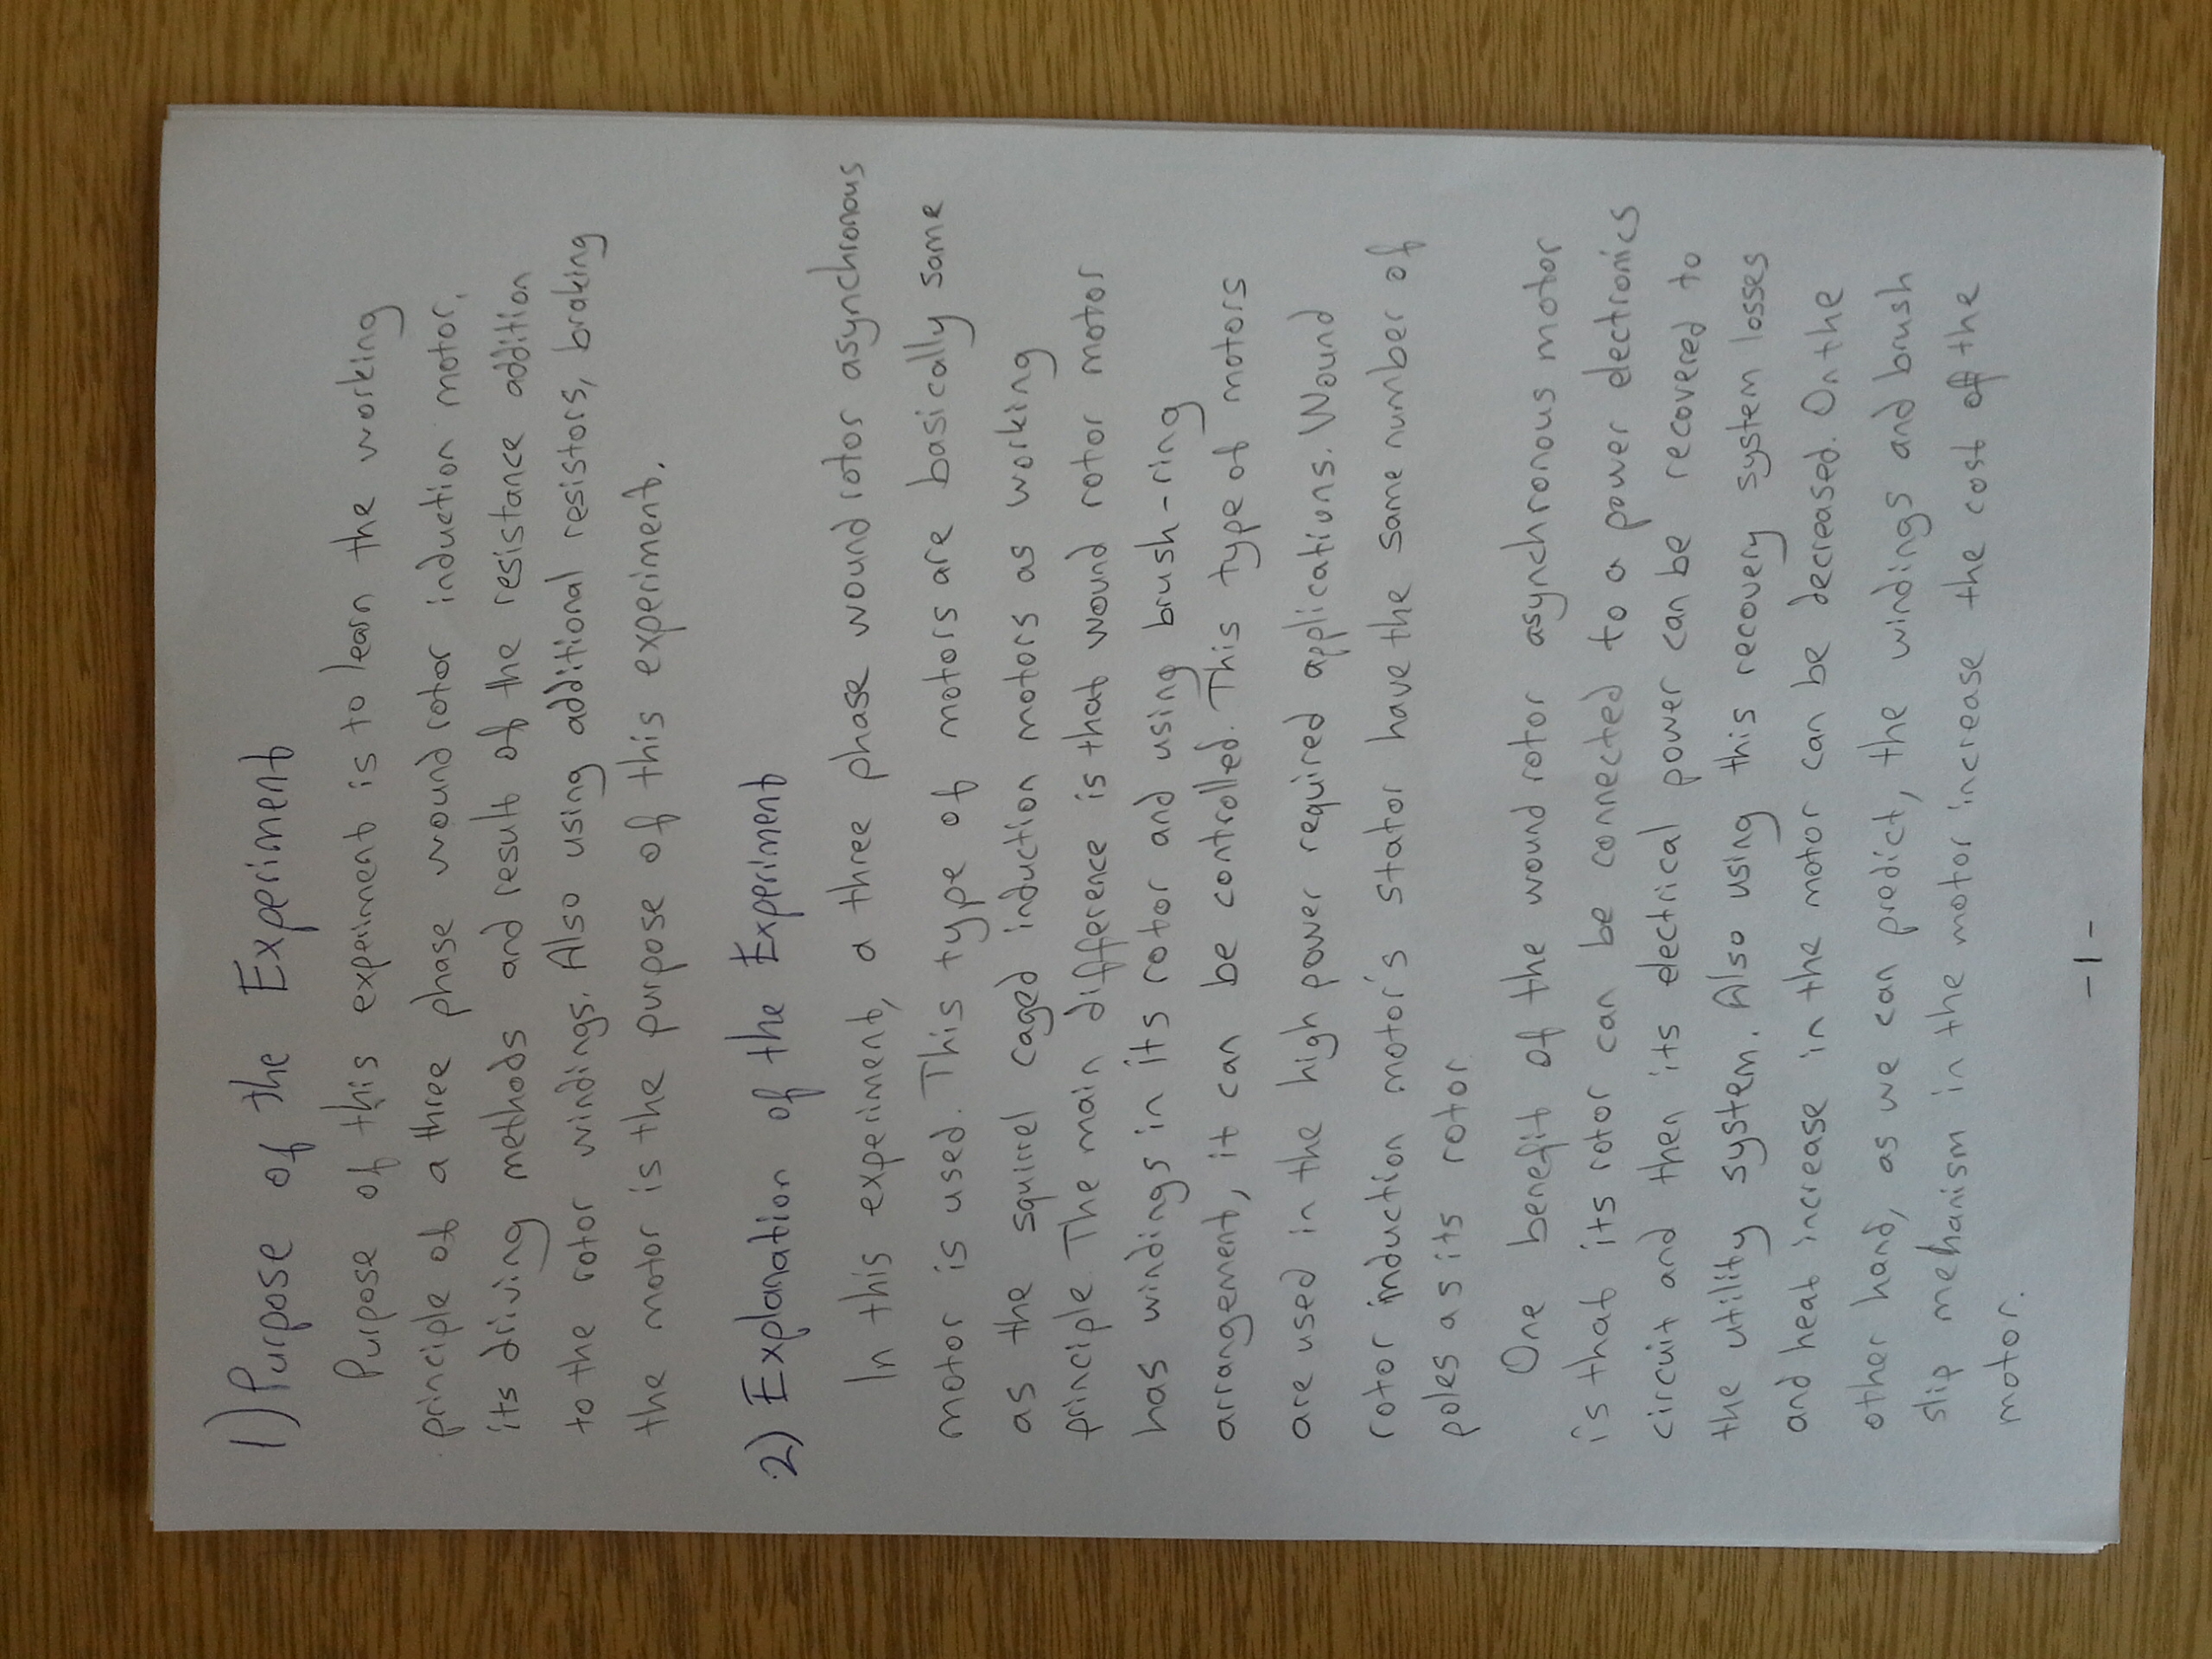 1) Purpose of the Experiment
Purpose of this experiment is to learn the working
principle of a three phase wound rotor induction motor,
its driving methods and result of the resistance addition
to the rotor windings. Also using additional resistors, braking
the motor is the purpose of this experiment.
2) Explanation of the Experiment
In this experiment, a three phase wound rotor asynchronous
motor is used. This type of motors are basically same
as the squirrel caged induction motors as working
principle. The main difference is that wound rotor motor
has windings in its rotor and using brush-ring
arrangement, it can be controlled. This type of motors
are used in the high power required applications. Wound
rotor induction motor's stator have the same number of
poles as its rotor.
One benefit of the wound rotor asynchronous motor
is that its rotor can be connected to a power electronics
circuit and then its electrical power can be recovered to
the utility system. Also using this recovery system losses
and heat increase in the motor can be decreased. On the
other hand, as we can predict, the windings and brush
slip mehanism in the motor increase the cost of the
motor.
-1-